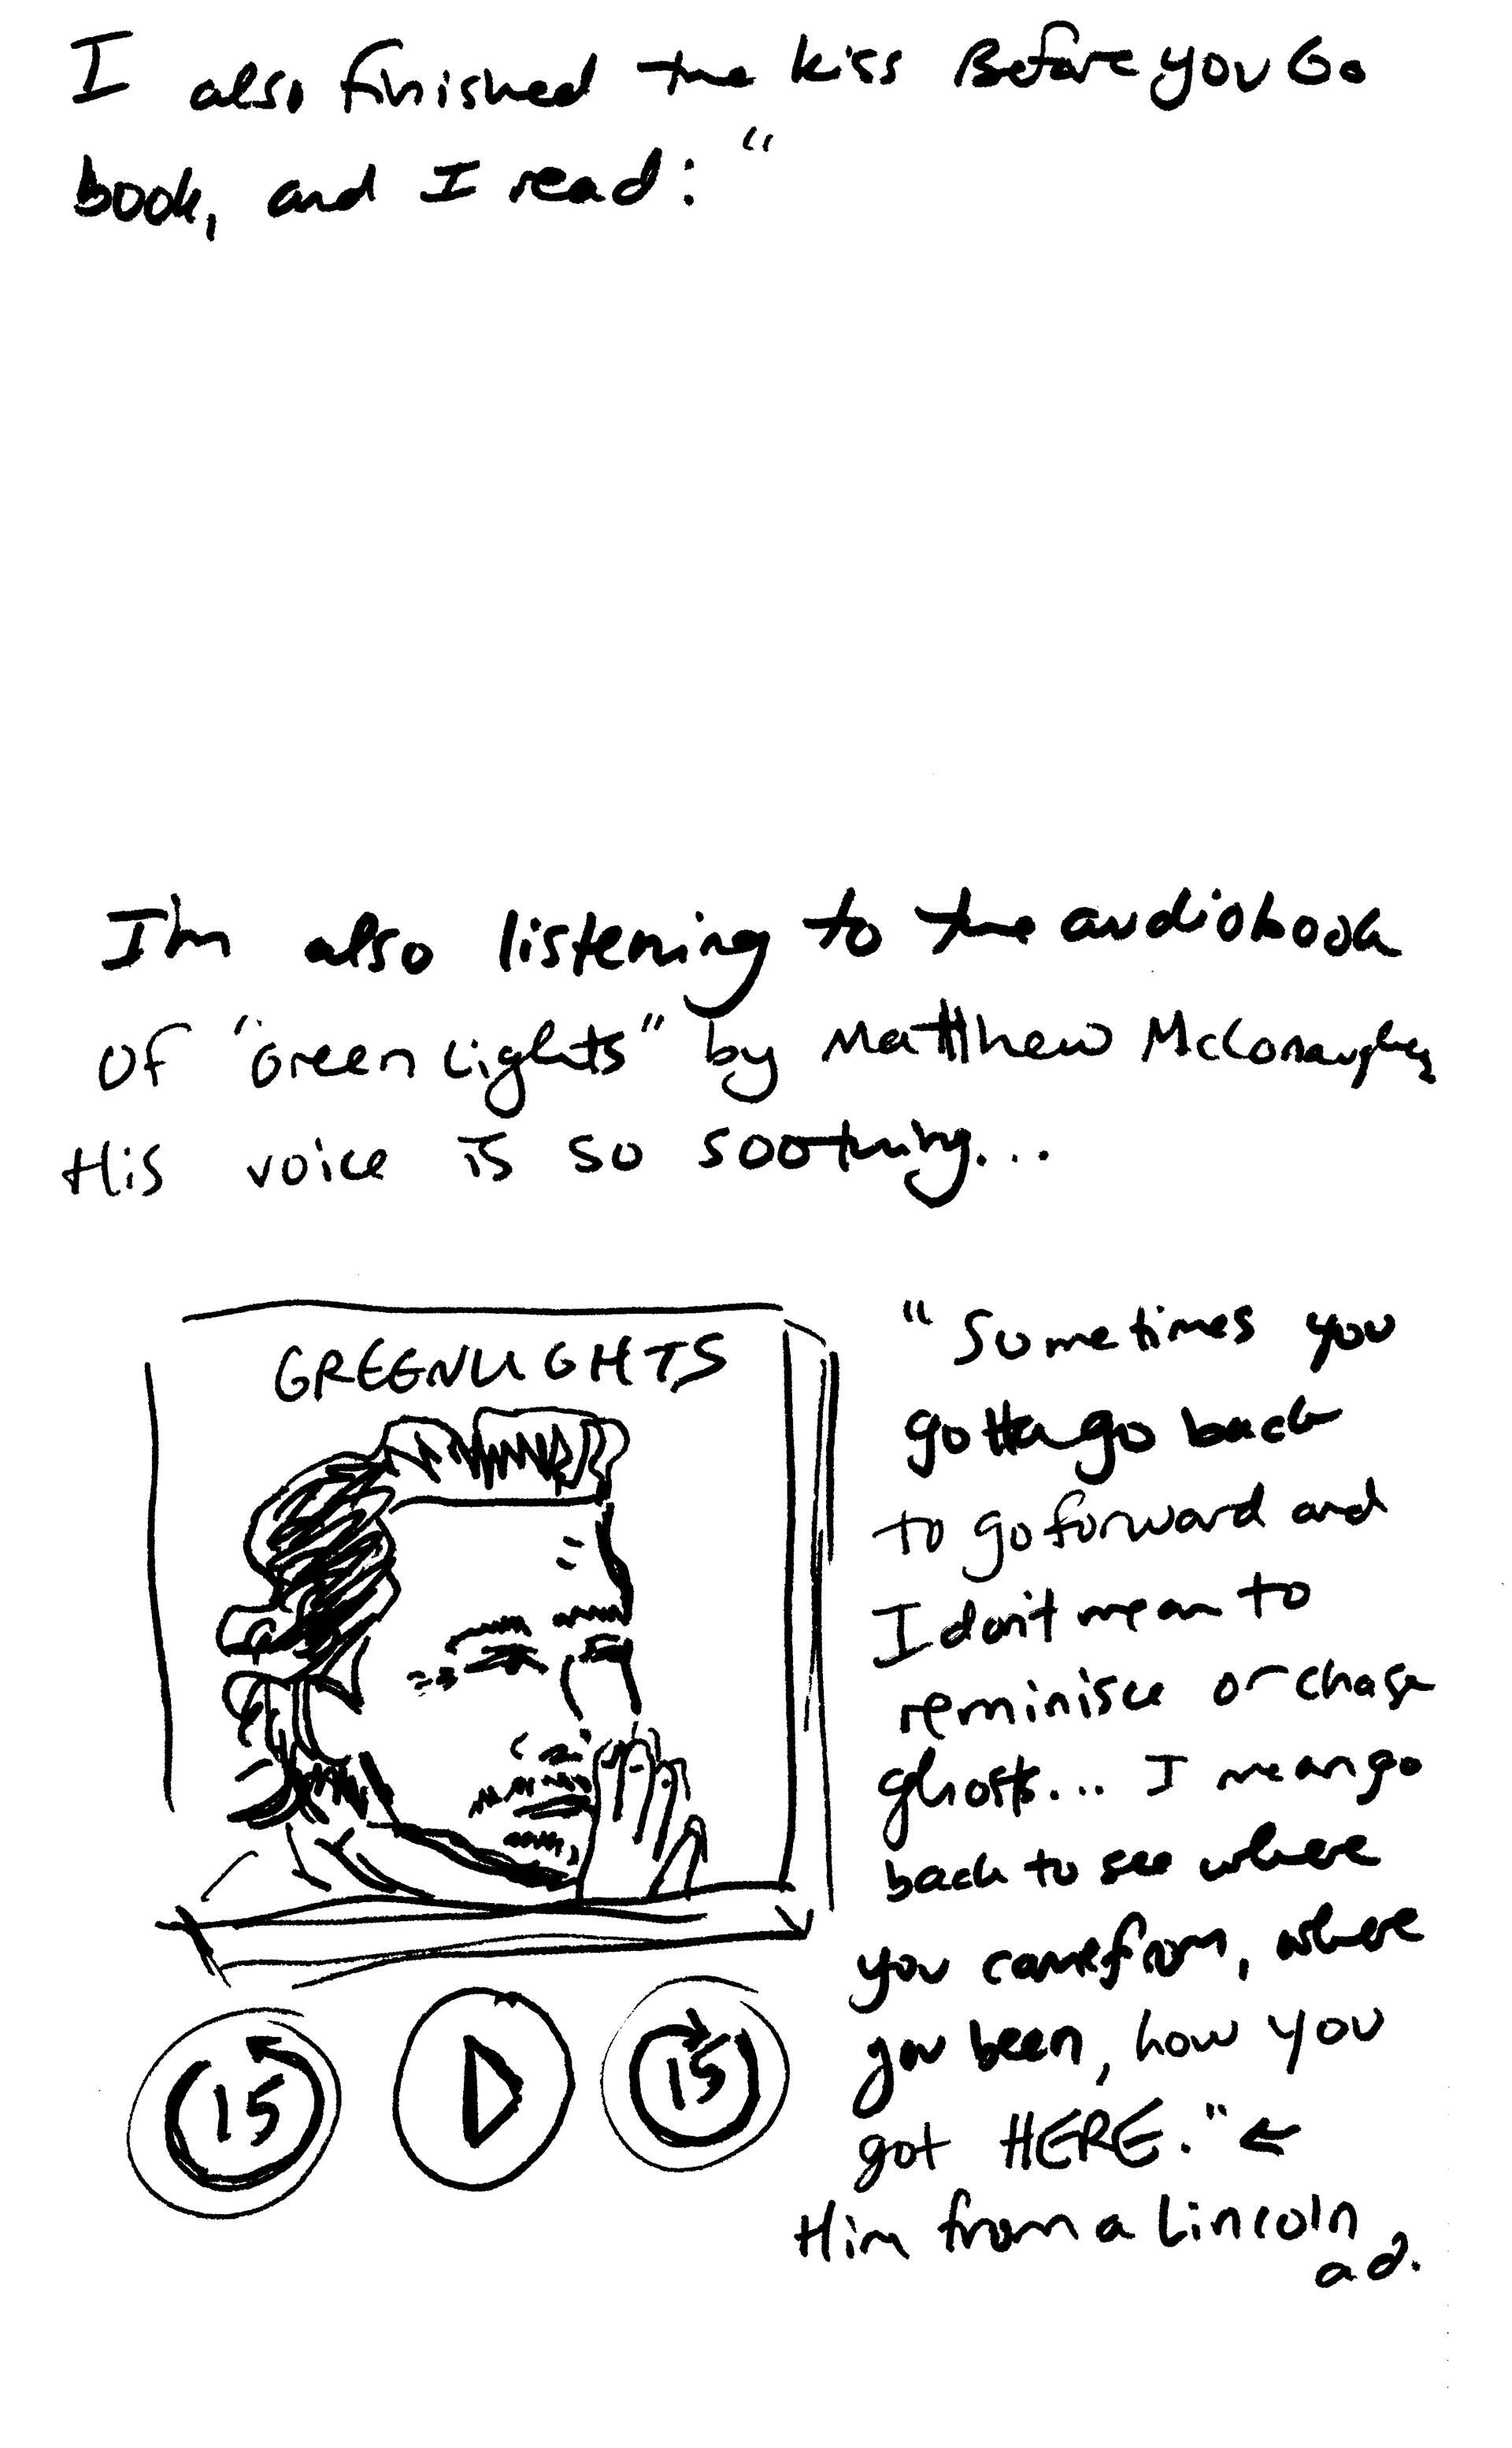 I also finished the kiss Before you Go
book, and I read: "
I'm also listening to the audiobook
of "Green Lights" by Matthew McConaughey
His voice is so soothing...
GREENLIGHTS
15
15
"Sometimes you
gotta go back
to go forward and
I don't mean to
reminisce or chase
ghosts... I mean go
back to see where
you came from, where
you been, how you
got HERE." ←
Him from a Lincoln
ad.